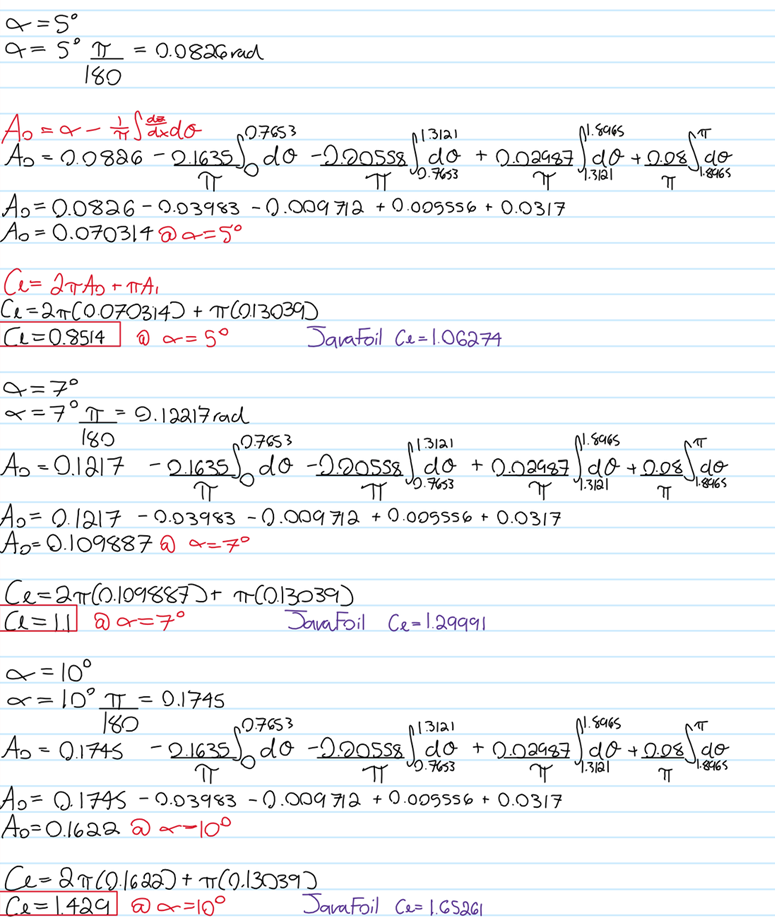 α = 5°
α = 5° π/180 = 0.0826 rad
A₀ = α - 1/π ∫ dz/dx dθ
A₀ = 0.0826 - 0.1635/π ∫₀^0.7653 dθ - 0.00558/π ∫_0.7653^1.3121 dθ + 0.02987/π ∫_1.3121^1.8965 dθ + 0.08/π ∫_1.8965^π dθ
A₀ = 0.0826 - 0.03983 - 0.009712 + 0.005556 + 0.0317
A₀ = 0.070314 @ α = 5°
Cℓ = 2πA₀ + πA₁
Cℓ = 2π(0.070314) + π(0.13039)
Cℓ = 0.8514 @ α = 5° JavaFoil Cℓ = 1.06274
α = 7°
α = 7° π/180 = 0.12217 rad
A₀ = 0.1217 - 0.1635/π ∫₀^0.7653 dθ - 0.00558/π ∫_0.7653^1.3121 dθ + 0.02987/π ∫_1.3121^1.8965 dθ + 0.08/π ∫_1.8965^π dθ
A₀ = 0.1217 - 0.03983 - 0.009712 + 0.005556 + 0.0317
A₀ = 0.109887 @ α = 7°
Cℓ = 2π(0.109887) + π(0.13039)
Cℓ = 1.1 @ α = 7° JavaFoil Cℓ = 1.29991
α = 10°
α = 10° π/180 = 0.1745
A₀ = 0.1745 - 0.1635/π ∫₀^0.7653 dθ - 0.00558/π ∫_0.7653^1.3121 dθ + 0.02987/π ∫_1.3121^1.8965 dθ + 0.08/π ∫_1.8965^π dθ
A₀ = 0.1745 - 0.03983 - 0.009712 + 0.005556 + 0.0317
A₀ = 0.1622 @ α = 10°
Cℓ = 2π(0.1622) + π(0.13039)
Cℓ = 1.429 @ α = 10° JavaFoil Cℓ = 1.65261